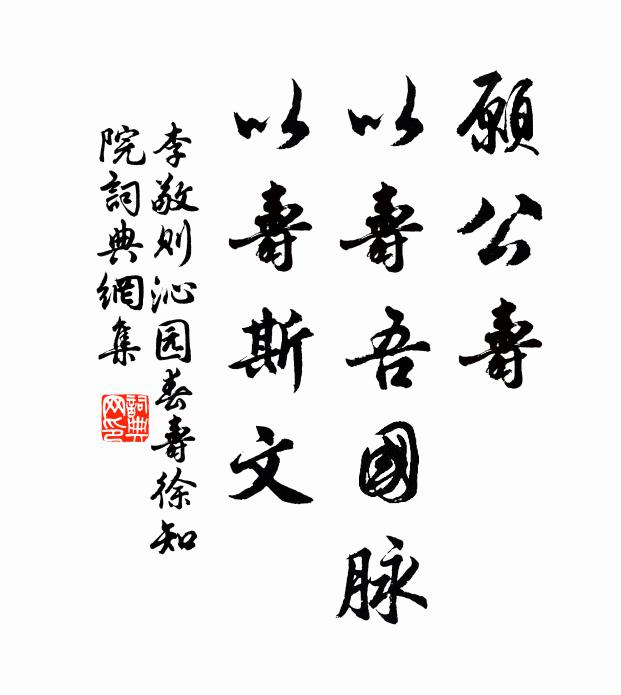 願公壽
以壽吾國脉
以壽斯文
李敬则沁园春壽徐知
院詞典網集
詞典
网印